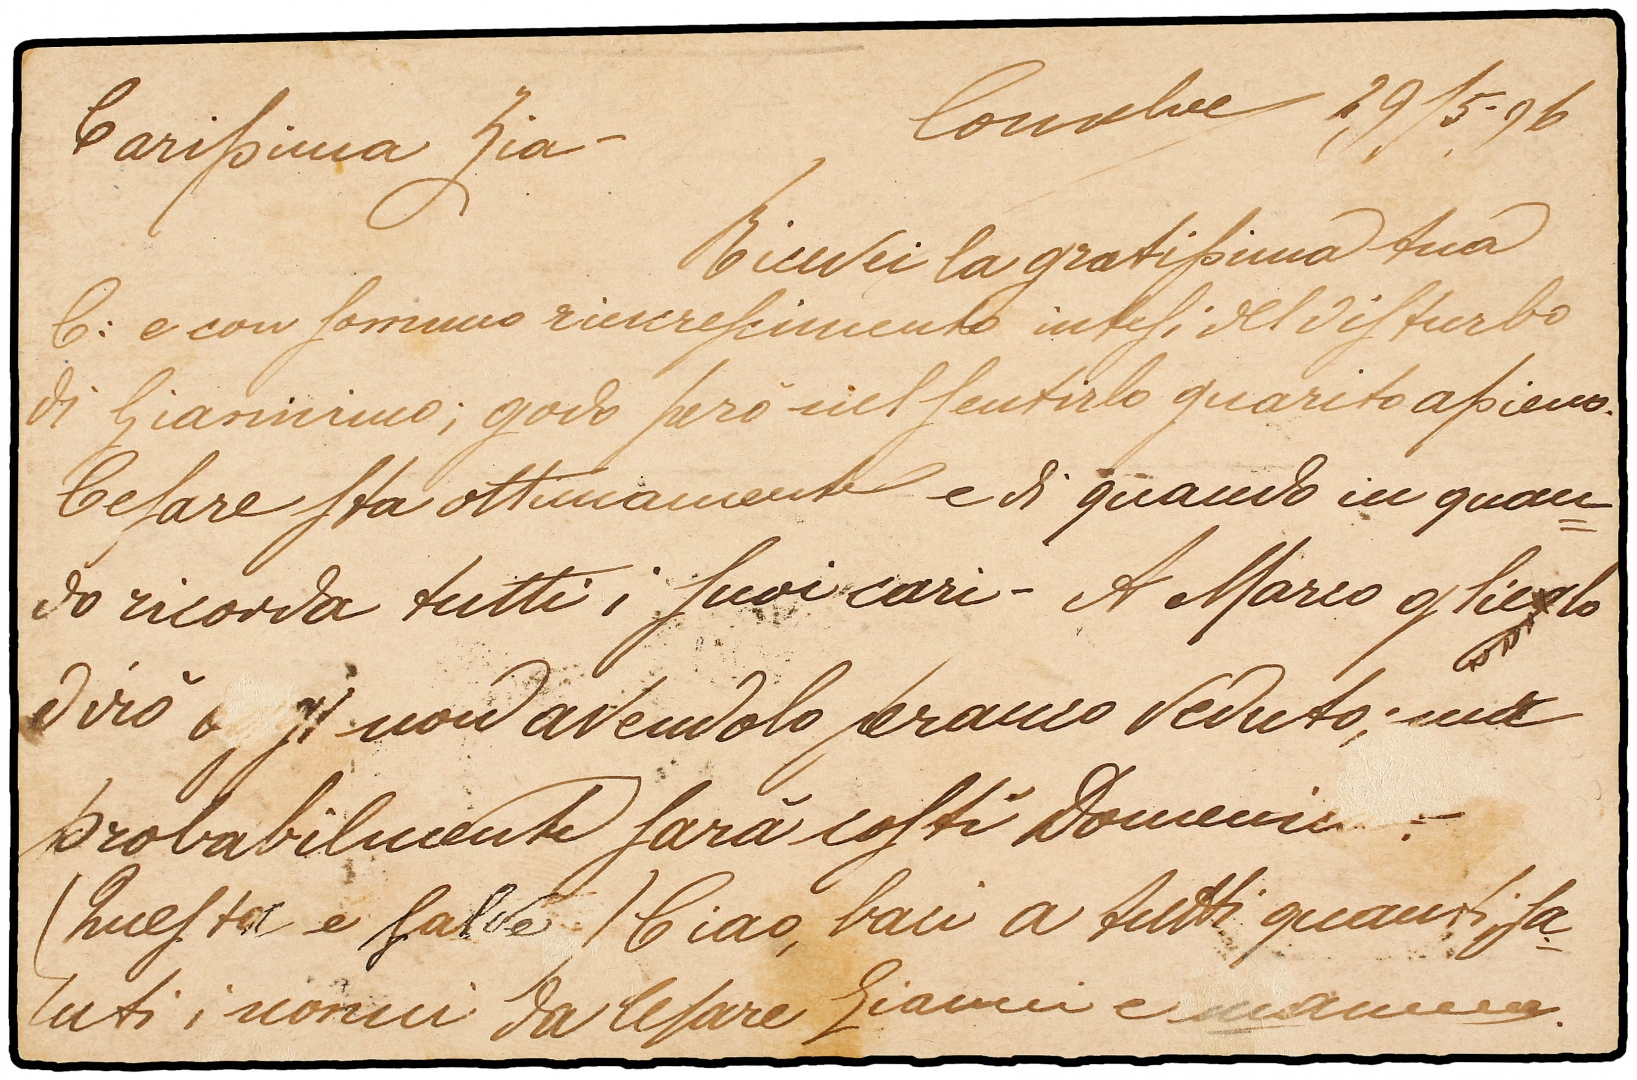 Carissima Zia – Conselve 29/5-96
Ricevei la gratissima tua
C: e con sommo rincrescimento intesi del disturbo
di Giannino; godo però nel sentirlo guarito apieno.
Cesare sta ottimamente e di quando in quan=
do ricorda tutti i suoi cari – A Marco glielo
dirò oggi non avendolo peranco veduto; ma
probabilmente sarà costì
(Questa e salve) Ciao, baci a tutti quanti, sa-
luti i nonni da Cesare Gianni e mamma.